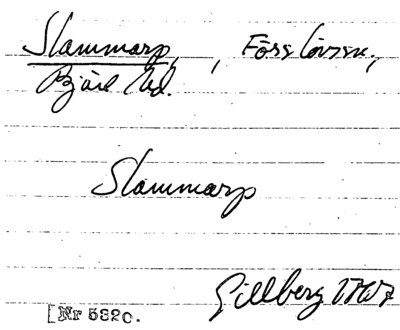 Slammarp, , Förslövssn.,
Bjäre hd.
Slammarp
Gillberg 1767
[Nr 5320.